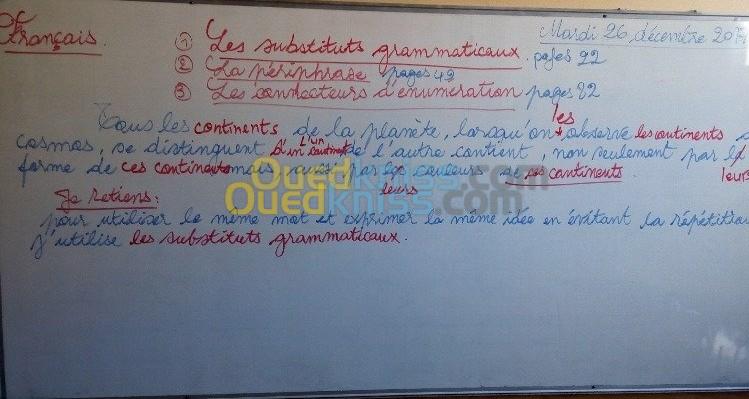 Français.
Mardi 26 décembre 2017
① Les substituts grammaticaux. pages 22
② La périphrase pages 42
③ Les connecteurs d'énumération pages 82
les
Tous les continents de la planète, lorsqu'on observe les continents
cosmos, se distinguent L'un de l'autre continent, non seulement par
forme de ces continents mais aussi par couleurs de ces continents.
leurs
leurs
Je retiens:
pour utiliser le même mot et exprimer la même idée en évitant la répétition
j'utilise les substituts grammaticaux.
Ouedkniss.com
Ouedkniss.com